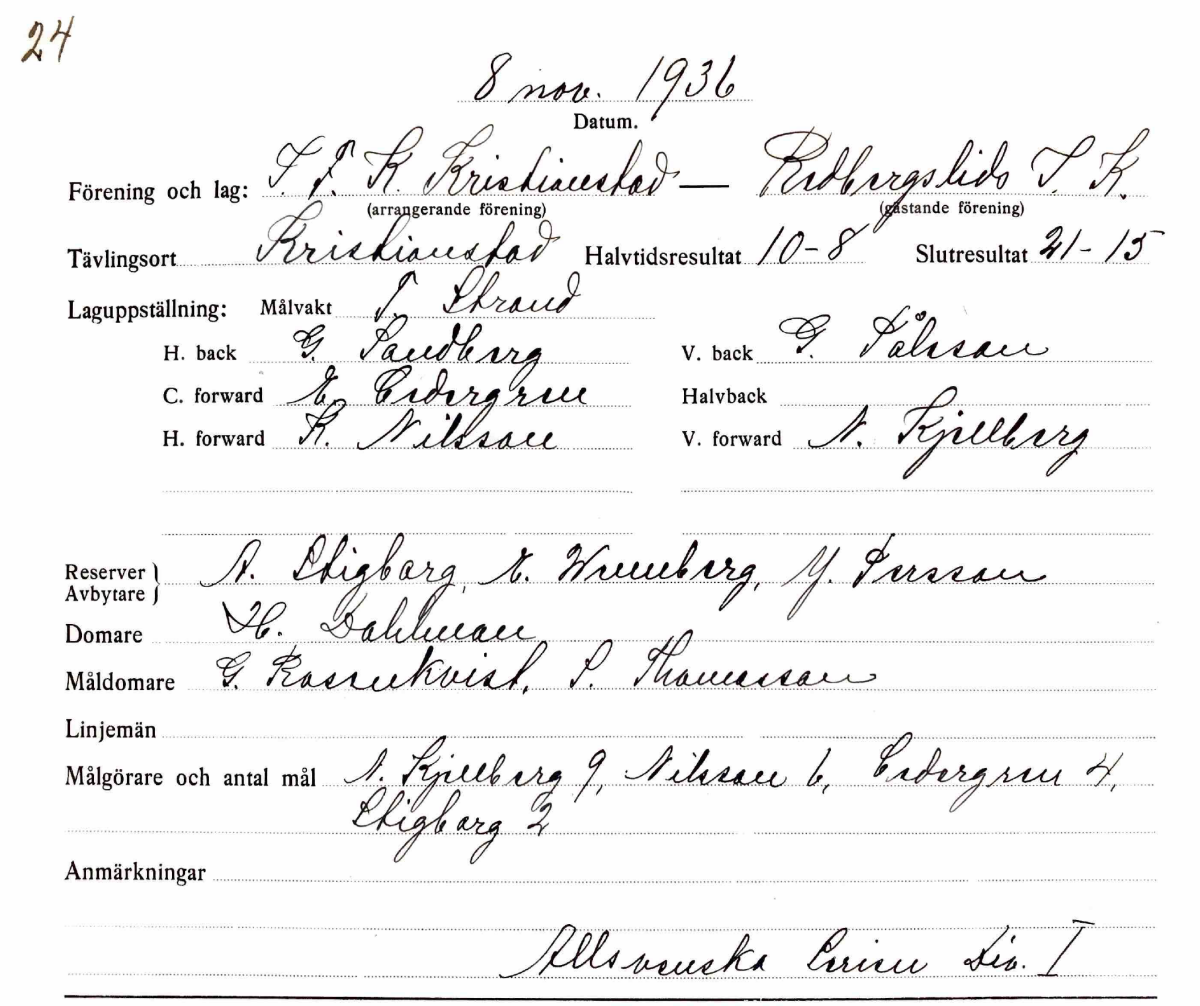 24
8 nov. 1936
Datum.
Förening och lag: I. F. K. Kristianstad — Redbergslids I. K.
(arrangerande förening) (gästande förening)
Tävlingsort Kristianstad Halvtidsresultat 10-8 Slutresultat 21-15
Laguppställning: Målvakt T. Strand
H. back G. Sandberg V. back G. Pålsson
C. forward E. Cedergren Halvback
H. forward K. Nilsson V. forward N. Kjellberg
Reserver Avbytare } A. Stigborg, E. Wreneberg, Y. Persson
Domare H. Dahlman
Måldomare G. Rosenkvist, S. Thomasson
Linjemän
Målgörare och antal mål N. Kjellberg 9, Nilsson 6, Cedergren 4,
Stigborg 2
Anmärkningar
Allsvenska Serien Div. I